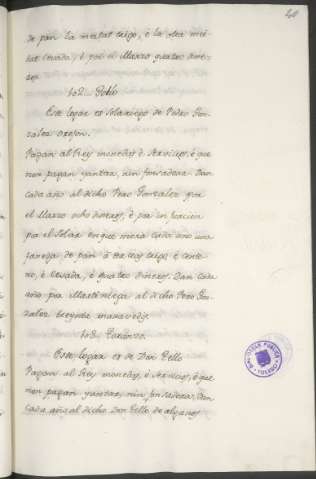 40
de pan la meitat trigo, è la otra mei-
tat cevada, è por el Marzo quatro dine-
ros
102.
Este logar es solariego de Pedro Gon-
zalez
Pagan al Rey monedas, è servicios, è que
non pagan yantar, nin fonsadera. Dan
cada año al dicho Pero Gonzalez por
el Marzo ocho dineros, è por infurcion
por el solar en que mora cada uno una
fanega de pan à tercios trigo, è cente-
no, è cevada, è quatro dineros. Dan cada
año por Martiniega al dicho Pero Gon-
zalez treynta maravedis.
103.
Este logar es de Don Tello
Pagan al Rey monedas, è servicios, è que
non pagan yantar, nin fonsadera. Dan
cada año al dicho Don Tello de
BIBLIOTECA PUBLICA
TOLEDO